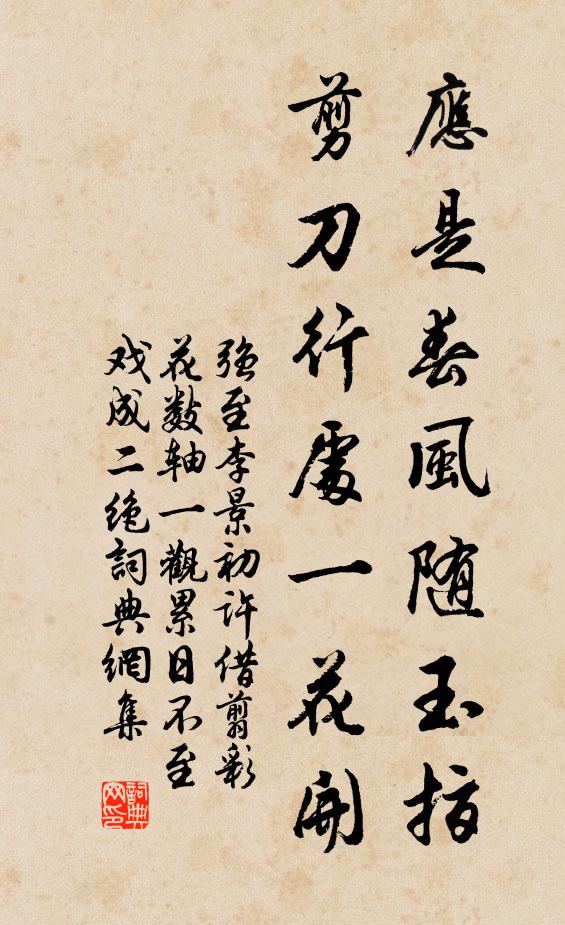 應是春風随玉指
剪刀行處一花開
强至李景初许借翦彩
花数轴一觀累日不至
戏成二绝詞典網集
詞典
网印